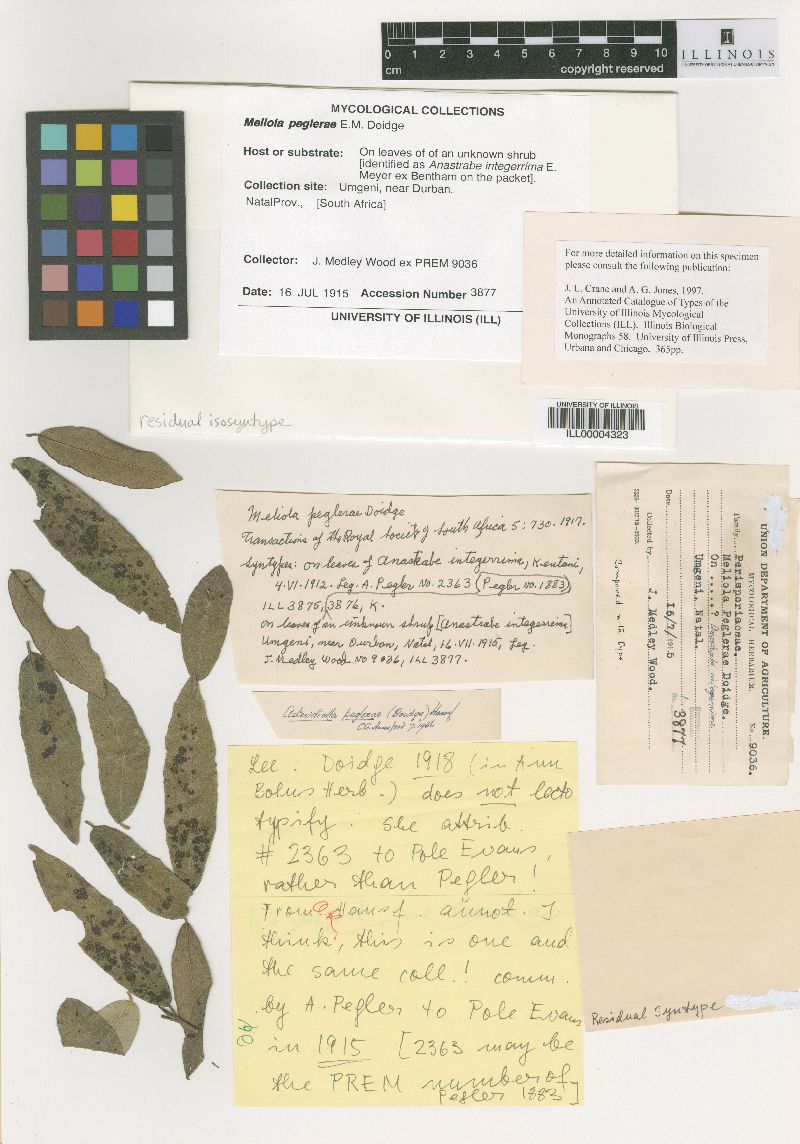 0 1 2 3 4 5 6 7 8 9 10
cm
copyright reserved
ILLINOIS
UNIVERSITY OF ILLINOIS AT URBANA-CHAMPAIGN
MYCOLOGICAL COLLECTIONS
Meliola peglerae E.M. Doidge
Host or substrate: On leaves of of an unknown shrub
[identified as Anastrabe integerrima E.
Meyer ex Bentham on the packet].
Collection site: Umgeni, near Durban.
NatalProv., [South Africa]
Collector: J. Medley Wood ex PREM 9036
Date: 16 JUL 1915 Accession Number 3877
UNIVERSITY OF ILLINOIS (ILL)
For more detailed information on this specimen
please consult the following publication:
J. L. Crane and A. G. Jones, 1997.
An Annotated Catalogue of Types of the
University of Illinois Mycological
Collections (ILL). Illinois Biological
Monographs 58. University of Illinois Press,
Urbana and Chicago. 365pp.
residual isosyntype
UNIVERSITY OF ILLINOIS
ILL00004323
Meliola peglerae Doidge
Transactions of the Royal Society of South Africa 5: 730. 1917.
Syntypes: on leaves of Anastrabe integerrima, Kentani,
4.VII.1912. Leg. A. Pegler No. 2363 (Pegler No. 1883)
ILL 3875, 3876, K.
on leaves of an unknown shrub [Anastrabe integerrima]
Umgeni, near Durban, Natal, 16.VII.1915, Leg.
J. Medley Wood No 9036, ILL 3877.
Asteridiella peglerae (Doidge) Hansf.
UNION DEPARTMENT OF AGRICULTURE.
MYCOLOGICAL HERBARIUM.
No. 9036.
Family Perisporiaceae.
Meliola Peglerae Doidge.
On ......? Anastrabe integerrima
Umgeni. Natal.
No. 3877
Date 16/7/1915
Collected by J. Medley Wood.
Compared with type
Lee: Doidge 1918 (in Ann
Bolus Herb.) does not lecto
typify. She attrib.
# 2363 to Pole Evans,
rather than Pegler!
From Hansf. annot. I
think, this is one and
the same coll.! comm.
by A. Pegler to Pole Evans
in 1915 [2363 may be
the PREM number of
Pegler 1883]
Residual Syntype